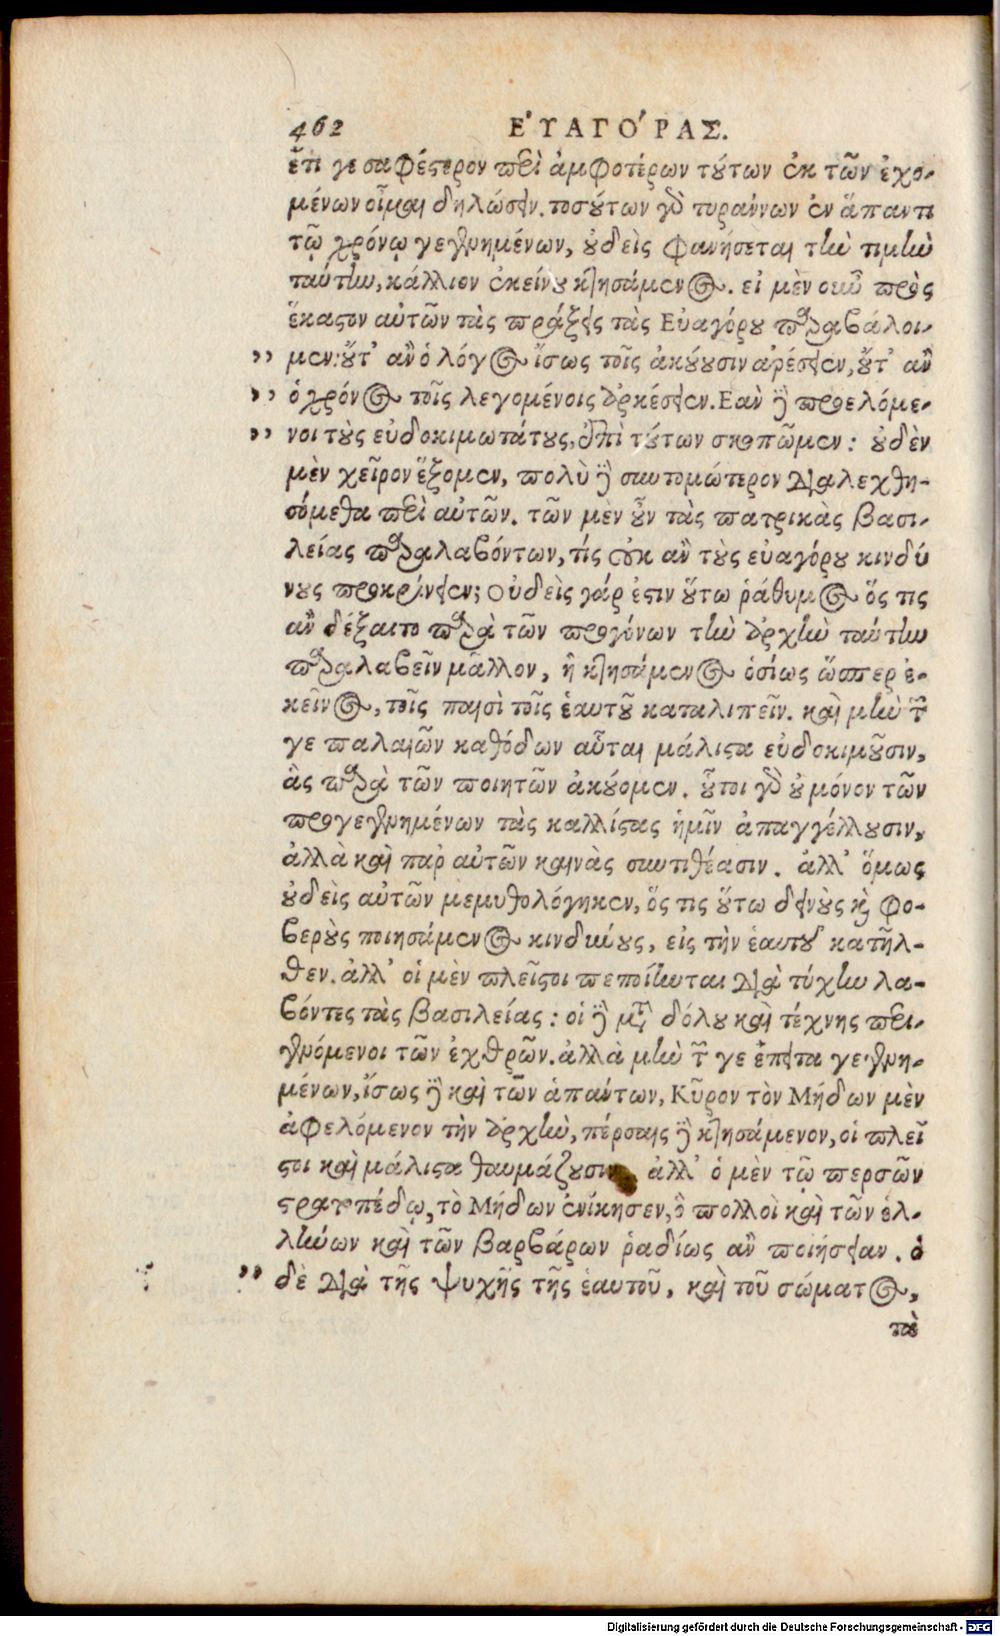 462 ΕὐΑΓΟ´ΡΑΣ.
ἔτι γε σαφέστερον περὶ ἀμφοτέρων τούτων ἐκ τῶν ἐχο-
μένων οἶμαι δηλώσειν. τοσούτων γὰρ τυράννων ἐν ἅπαντι
τῷ χρόνῳ γεγενημένων, οὐδεὶς φανήσεται τὴν τιμὴν
ταύτην, κάλλιον ἐκείνου κτησάμενος. εἰ μὲν οὖν πρὸς
ἕκαστον αὐτῶν τὰς πράξεις τὰς Εὐαγόρου παραβάλοι-
,, μεν: οὔτ' ἂν ὁ λόγος ἴσως τοῖς ἀκούουσιν ἀρέσειεν, οὔτ' ἂν
,, ὁ χρόνος τοῖς λεγομένοις ἀρκέσειεν. Εαν δὲ προελόμε-
,, νοι τοὺς εὐδοκιμωτάτους, ἐπὶ τούτων σκοπῶμεν: οὐδὲν
μὲν χεῖρον ἕξομεν, πολὺ δὲ συντομώτερον διαλεχθη-
σόμεθα περὶ αὐτῶν. τῶν μὲν οὖν τὰς πατρικὰς βασι-
λείας παραλαβόντων, τίς οὐκ ἂν τοὺς εὐαγόρου κινδύ
νους προκρίνειεν; Οὐδεὶς γάρ ἐστιν οὕτω ῥάθυμος ὅς τις
ἂν δέξαιτο παρὰ τῶν προγόνων τὴν ἀρχὴν ταύτην
παραλαβεῖν μᾶλλον, ἢ κτησάμενος ὁσίως ὥσπερ ἐ-
κεῖνος, τοῖς παισὶ τοῖς ἑαυτοῦ καταλιπεῖν. καὶ μὴν τῶν
γε παλαιῶν καθόδων αὗται μάλιστα εὐδοκιμοῦσιν,
ἃς παρὰ τῶν ποιητῶν ἀκούομεν. οὗτοι γὰρ οὐ μόνον τῶν
προγεγενημένων τὰς καλλίστας ἡμῖν ἀπαγγέλλουσιν,
ἀλλὰ καὶ παρ αὐτῶν καινὰς συντιθέασιν. ἀλλ' ὅμως
οὐδεὶς αὐτῶν μεμυθολόγηκεν, ὅς τις οὕτω δεινοὺς καὶ φο-
βεροὺς ποιησάμενος κινδύνους, εἰς τὴν ἑαυτοῦ κατῆλ-
θεν. ἀλλ' οἱ μὲν πλεῖστοι πεποίηνται διὰ τύχην λα-
βόντες τὰς βασιλείας: οἱ δὲ μετὰ δόλου καὶ τέχνης περι-
γενόμενοι τῶν ἐχθρῶν. ἀλλὰ μὴν τῶν γε ἔπειτα γεγενη-
μένων, ἴσως δὲ καὶ τῶν ἁπάντων, Κῦρον τὸν Μήδων μὲν
ἀφελόμενον τὴν ἀρχὴν, πέρσαις δὲ κτησάμενον, οἱ πλεῖ
στοι καὶ μάλιστα θαυμάζουσιν ἀλλ' ὁ μὲν τῷ περσῶν
στρατοπέδῳ, τὸ Μήδων ἐνίκησεν, ὃ πολλοὶ καὶ τῶν ἑλ-
λήνων καὶ τῶν βαρβάρων ῥαδίως ἂν ποιήσειαν. ὁ
,, δὲ διὰ τῆς ψυχῆς τῆς ἑαυτοῦ, καὶ τοῦ σώματος,
τὰ
Digitalisierung gefördert durch die Deutsche Forschungsgemeinschaft - DFG